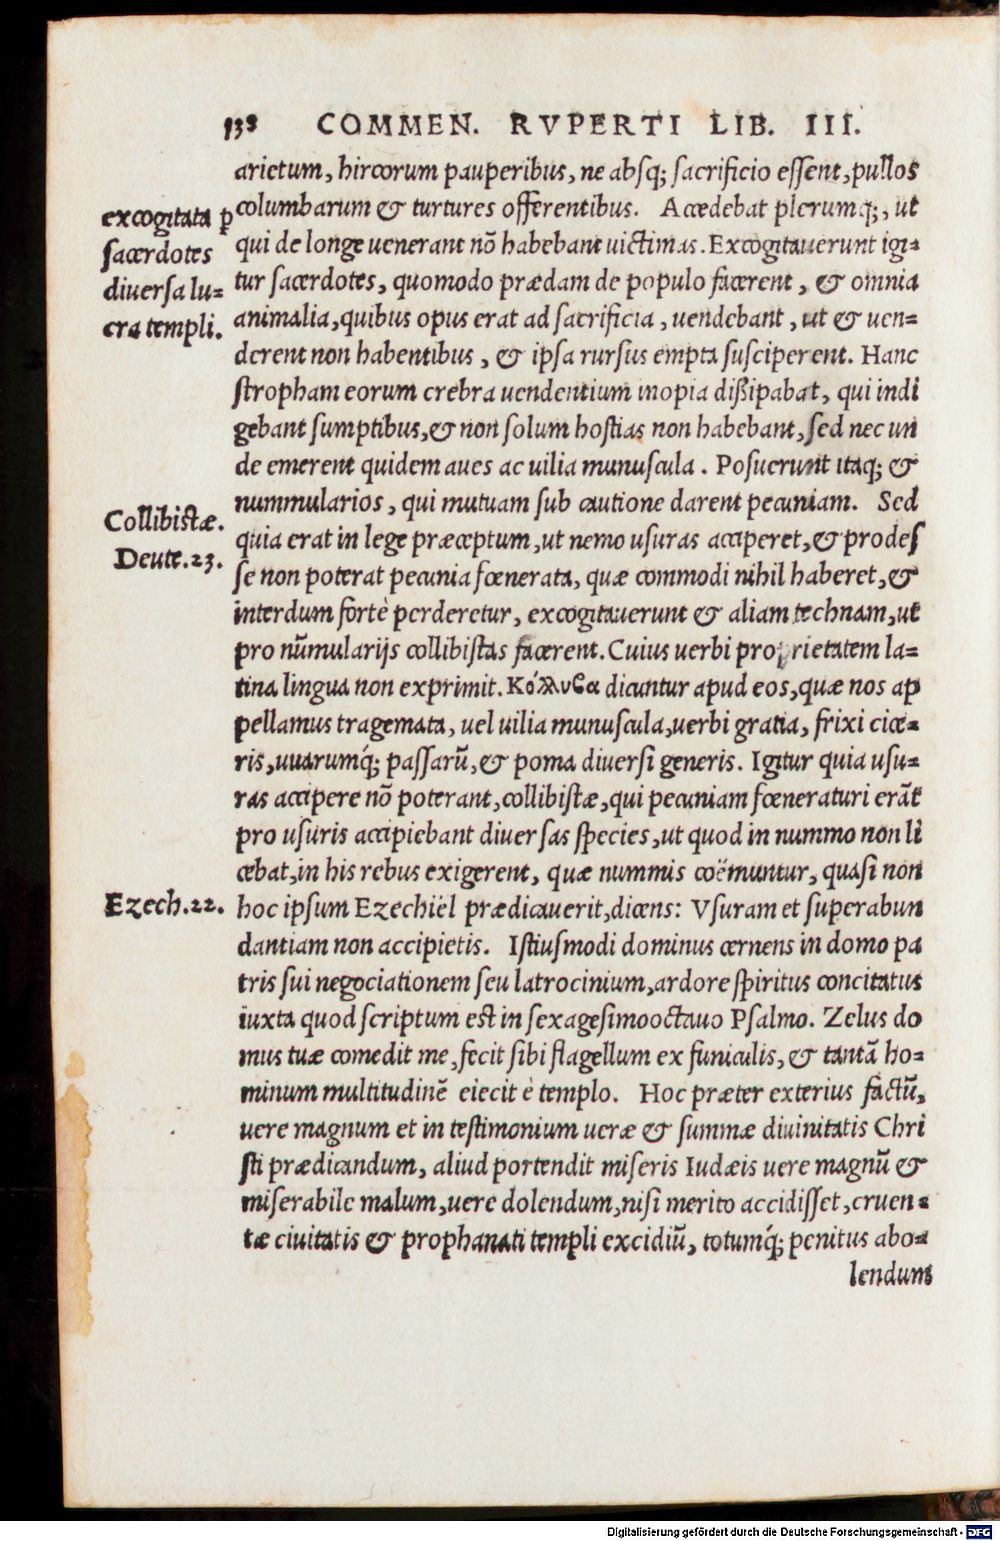 138 COMMEN. RVPERTI LIB. III.
arietum, hircorum pauperibus, ne absq; sacrificio essent, pullos
columbarum & turtures offerentibus. Accedebat plerumq;, ut
qui de longe uenerant nõ habebant uictimas. Excogitauerunt igi=
tur sacerdotes, quomodo prædam de populo facerent, & omnia
animalia, quibus opus erat ad sacrificia, uendebant, ut & uen=
derent non habentibus, & ipsa rursus empta susciperent. Hanc
stropham eorum crebra uendentium inopia dißipabat, qui indi
gebant sumptibus, & non solum hostias non habebant, sed nec un
de emerent quidem aues ac uilia munuscula. Posuerunt itaq; &
nummularios, qui mutuam sub cautione darent pecuniam. Sed
quia erat in lege præceptum, ut nemo usuras acciperet, & prodes
se non poterat pecunia fœnerata, quæ commodi nihil haberet, &
interdum fortè perderetur, excogitauerunt & aliam technam, ut
pro nũmularijs collibistas facerent. Cuius uerbi proprietatem la=
tina lingua non exprimit. Κόλλυβα dicuntur apud eos, quæ nos ap
pellamus tragemata, uel uilia munuscula, uerbi gratia, frixi cice=
ris, uuarumq́; passarũ, & poma diuersi generis. Igitur quia usu=
ras accipere nõ poterant, collibistæ, qui pecuniam fœneraturi erãt
pro usuris accipiebant diuersas species, ut quod in nummo non li
cebat, in his rebus exigerent, quæ nummis coëmuntur, quasi non
hoc ipsum Ezechiel prædicauerit, dicens: Vsuram et superabun
dantiam non accipietis. Istiusmodi dominus cernens in domo pa
tris sui negociationem seu latrocinium, ardore spiritus concitatus
iuxta quod scriptum est in sexagesimooctauo Psalmo. Zelus do
mus tuæ comedit me, fecit sibi flagellum ex funiculis, & tantã ho=
minum multitudinẽ eiecit è templo. Hoc præter exterius factũ,
uere magnum et in testimonium ueræ & summæ diuinitatis Chri
sti prædicandum, aliud portendit miseris Iudæis uere magnũ &
miserabile malum, uere dolendum, nisi merito accidisset, cruen=
tæ ciuitatis & prophanati templi excidiũ, totumq́; penitus abo=
lendum
excogitata p
sacerdotes
diuersa lu=
cra templi.
Collibistæ.
Deute.23.
Ezech.22.
Digitalisierung gefördert durch die Deutsche Forschungsgemeinschaft - DFG